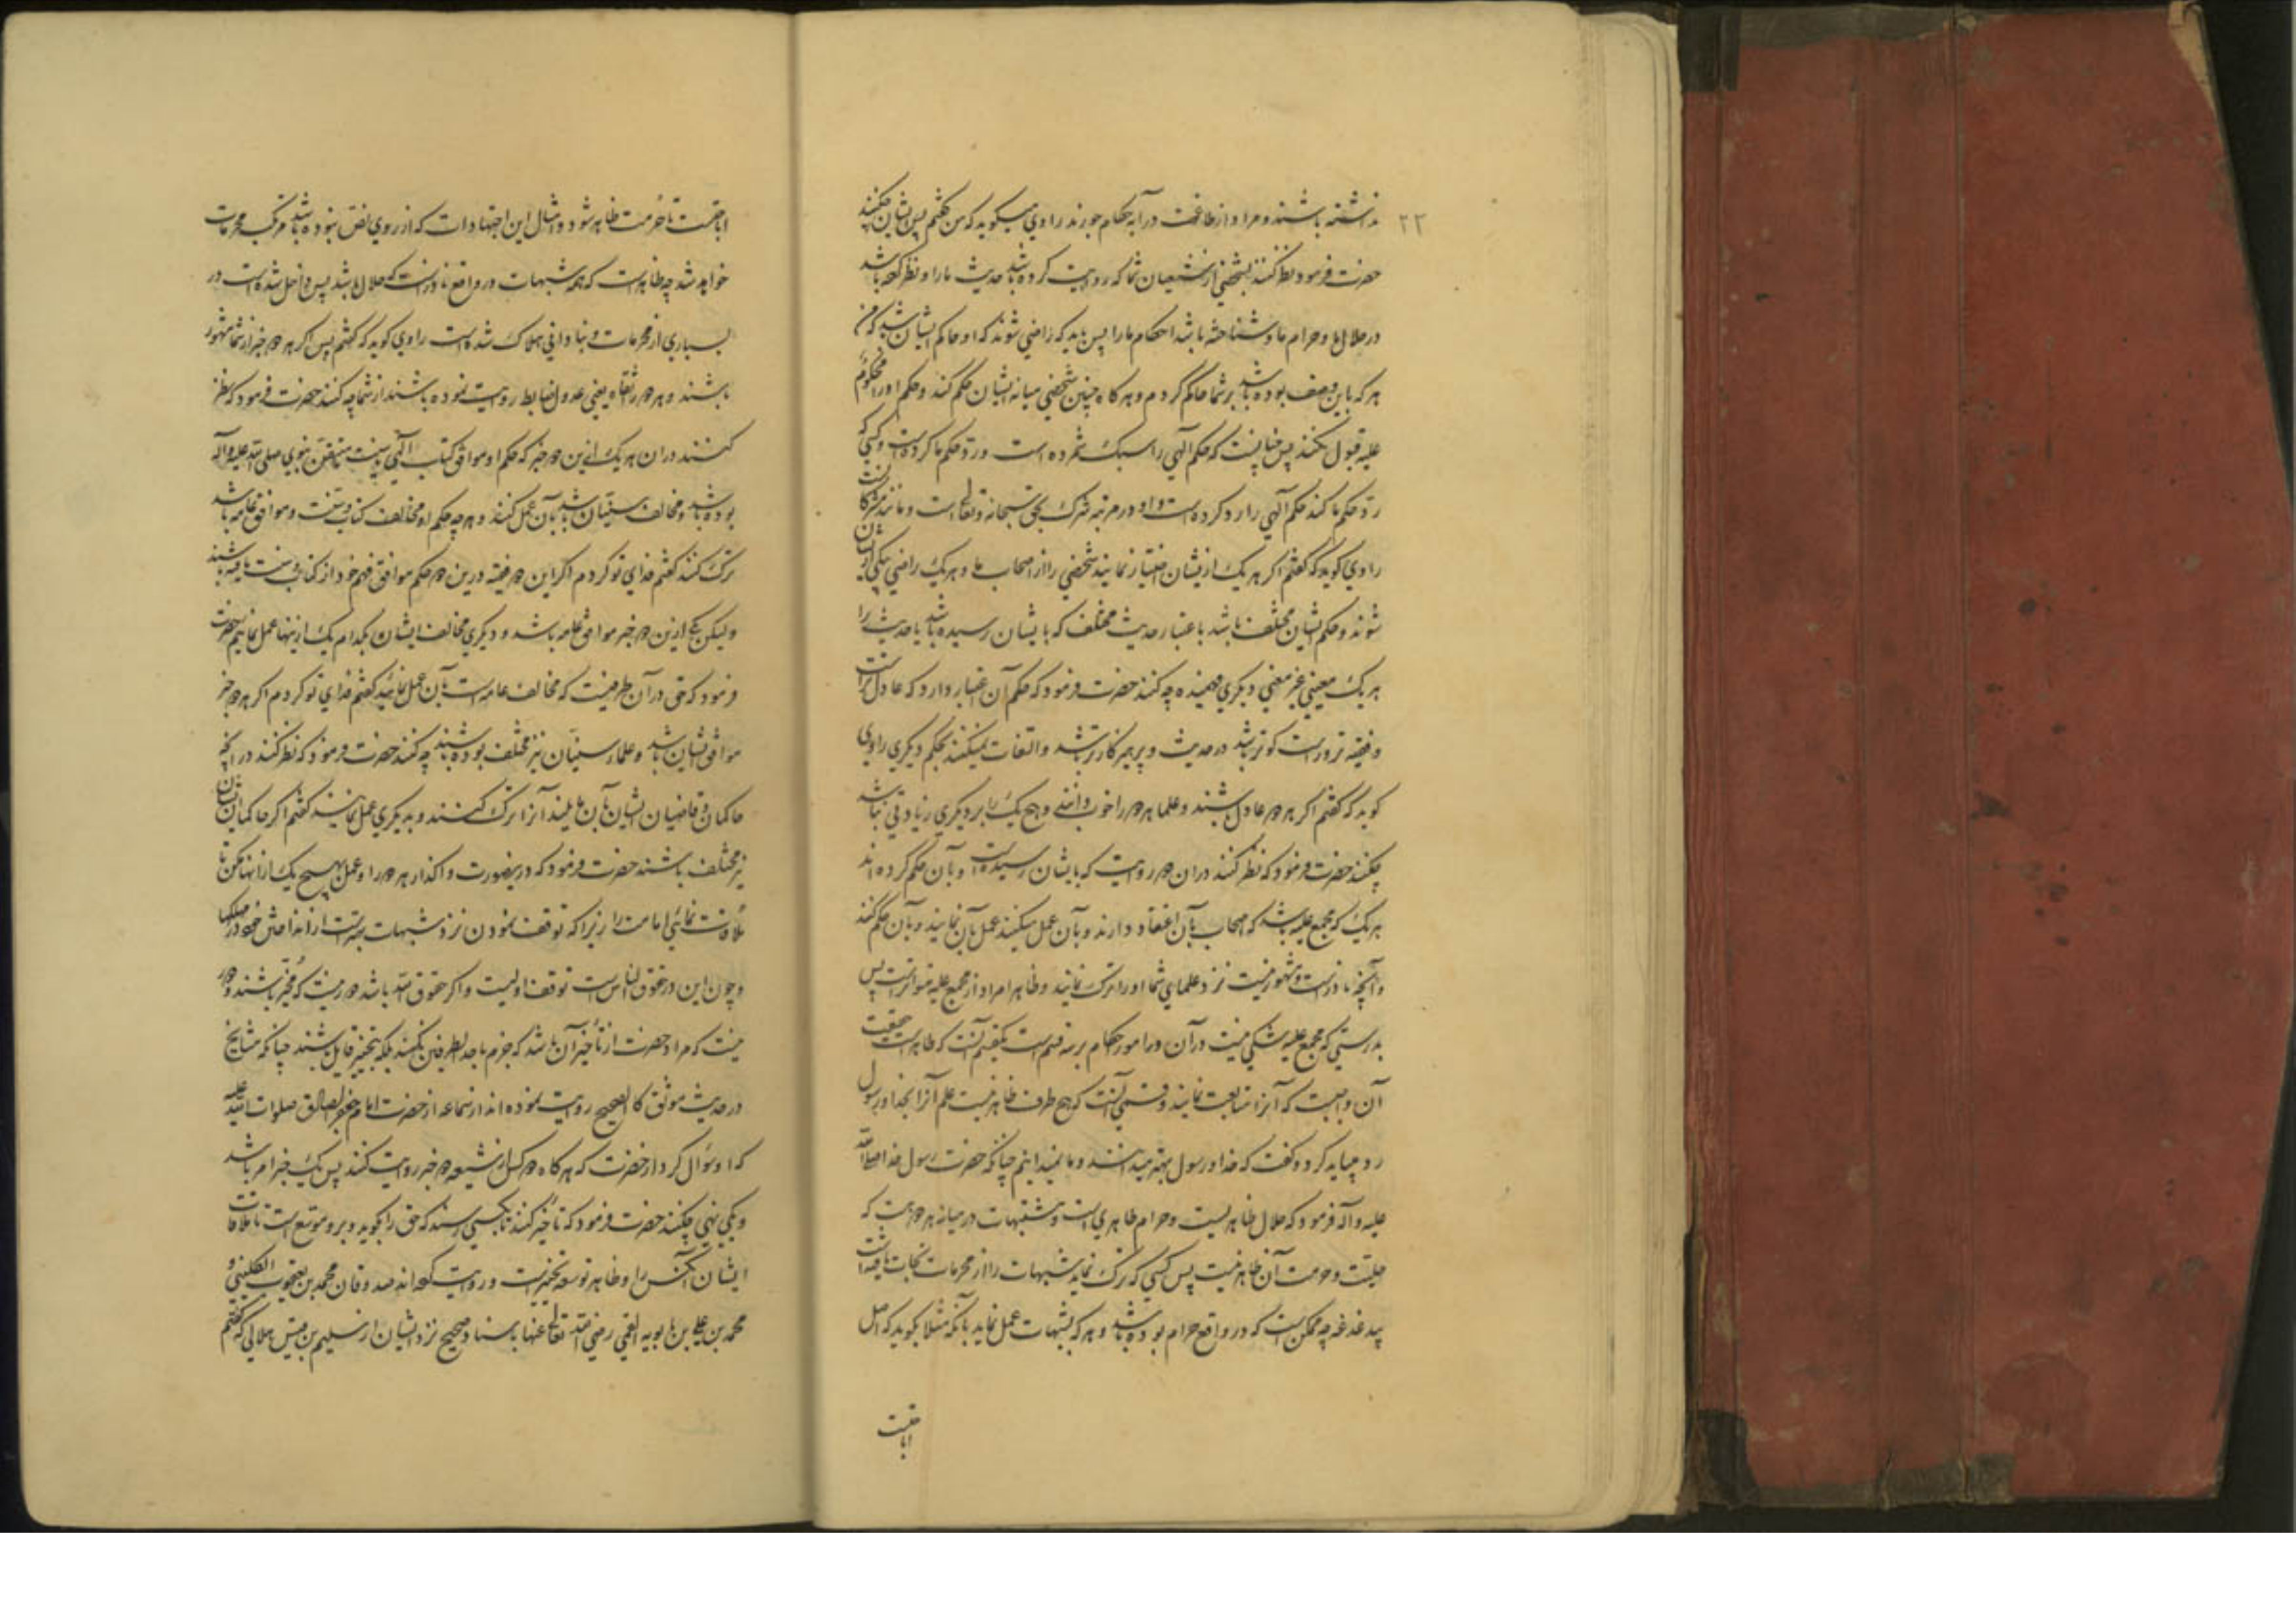 ۲۲
نداشته باشند و مراد از طاغوت در آیه حکام جورند راوی میگوید که من گفتم پس ایشان چکنند
حضرت فرمود نظر کنند بشخصی از شیعیان شما که روایت کرده باشد حدیث ما را و نظر کرده باشد
در حلال ما و حرام ما و شناخته باشد احکام ما را پس باید که راضی شوند که او حاکم ایشان باشد که من
هر که باین وصف بوده باشد بر شما حاکم کردم و هر کاه چنین شخصی میانه ایشان حکم کند و حکم او را محکوم
علیه قبول نکند پس چنانست که حکم الهی را سبک شمرده است و رد حکم ما کرده است و کسی که
رد حکم ما کند حکم الهی را رد کرده است و او در مرتبه شرک بحق سبحانه و تعالی است و مانند مشرکانست
راوی کوید که گفتم اکر هر یک از یشان اختیار نمایند شخصی را از اصحاب ما و هر یک راضی بیکی از یشان
شوند و حکم ایشان مختلف باشد باعتبار حدیث مختلف که بایشان رسیده باشد یا حدیث را
هر یک معنیی غیر معنی دیکری فهمیده چه کنند حضرت فرمود که حکم آن اعتبار دارد که عادل تر است
و فقیه تر و راست کوتر باشد در حدیث و پرهیزکارتر باشد و التفات نمیکنند بحکم دیکری راوی
کوید که گفتم اکر هر دو عادل باشند و علما هر دو را خوب دانند و هیچ یک را بر دیکری زیادتی نباشد
چکنند حضرت فرمود که نظر کنند دران دو روایت که بایشان رسیده است و بآن حکم کرده اند
هر یک که مجمع علیه باشد که اصحاب بآن اعتقاد دارند و بآن عمل میکنند عمل بآن نمایند و بآن حکم کنند
و آنچه نادرست و مشهور نیست نزد علمای شما او را ترک نمایند و ظاهرا مراد از مجمع علیه متواترست پس
بدرستی که مجمع علیه شکی نیست در آن و امور احکام بر سه قسم است یکقسم آنست که ظاهر است حقیت
آن واجبست که آنرا متابعت نمایند و قسمی آنست که هیچ طرف ظاهر نیست علم آنرا بخدا و رسول
رد میباید کرد و گفت که خدا و رسول بهتر میدانند و ما نمیدانیم چنانکه حضرت رسول خدا صلی الله
علیه و آله فرمود که حلال ظاهریست و حرام ظاهری است و مشتبهات در میانه هر دو هست که
حلیت و حرمت آن ظاهر نیست پس کسی که ترک نماید شبهات را از محرمات نجات یافته است
بیدغدغه چه ممکن است که در واقع حرام بوده باشد و هر که بشبهات عمل نماید بآنکه مثلا بکوید که اصل
اباحتست
اباحتست تا حرمت ظاهر شود و امثال این اجتهادات که از روی نص نبوده باشد مرتکب محرمات
خواهد شد چه ظاهر است که همه شبهات در واقع نادرست که حلال باشد پس داخل شده است در
بسیاری از محرمات و بنادانی هلاک شده است راوی کوید که گفتم پس اکر هر دو خبر از شما مشهور
باشند و هر دو را ثقاه یعنی عدول ضابط روایت نموده باشند از شما چه کنند حضرت فرمود که نظر
کنند دران هر یک ازین دو خبر که حکم او موافق کتاب الهی و سنت متیقن نبوی صلی الله علیه و آله
بوده باشد و مخالف سنیان باشد بآن عمل کنند و هر چه حکم او مخالف کتاب و سنت و موافق عامه باشد
ترک کنند گفتم فدای تو کردم اکر این دو فقیه درین دو حکم موافق فهم خود از کتاب و سنت یافته باشند
ولیکن یکی ازین دو خبر موافق عامه باشد و دیکری مخالف ایشان بکدام یک ازینها عمل نماییم حضرت
فرمود که حق در آن طرفیست که مخالف عامه است بآن عمل نمائید گفتم فدای تو کردم اکر هر دو خبر
موافق ایشان باشد و علماء سنیان نیز مختلف بوده باشند چه کنند حضرت فرمود که نظر کنند در آنچه
حاکمان و قاضیان ایشان بآن مایلند آنرا ترک کنند و بدیکری عمل نمایند گفتم اکر حاکمان ایشان
نیز مختلف باشند حضرت فرمود که درینصورت واکذار هر دو را و عمل بهیچ یک از انها مکن تا
ملاقات نمائی امامت را زیرا که توقف نمودن نزد شبهات بهتر است از انداختن خود در مهلکها
و چون این در حقوق الناس است توقف اولیست و اکر حقوق الله باشد دور نیست که مخیر باشند و دور
نیست که مراد حضرت از تأخیر آن باشد که جزم باحد الطرفین نکنند بلکه بتخییر قایل باشند چنانکه مشایخ
در حدیث موثق کالصحیح روایت نموده اند از سماعه از حضرت امام جعفر الصادق صلوات الله علیه
که او سؤال کرد از حضرت که هر کاه دو کس از شیعه دو خبر روایت کنند پس یک خبر امر باشد
و یکی نهی چکنند حضرت فرمود که تأخیر کنند تا بکسی رسند که حق را بکوید و بر و موسع است تا ملاقات
ایشان آنکس را و ظاهر توسعه تخییر است و روایت کرده اند صدوقان محمد بن یعقوب الکلینی و
محمد بن علی بن بابویه القمی رضی الله تعالی عنها باسناد صحیح نزد ایشان از سلیم بن قیس هلالی که گفتم